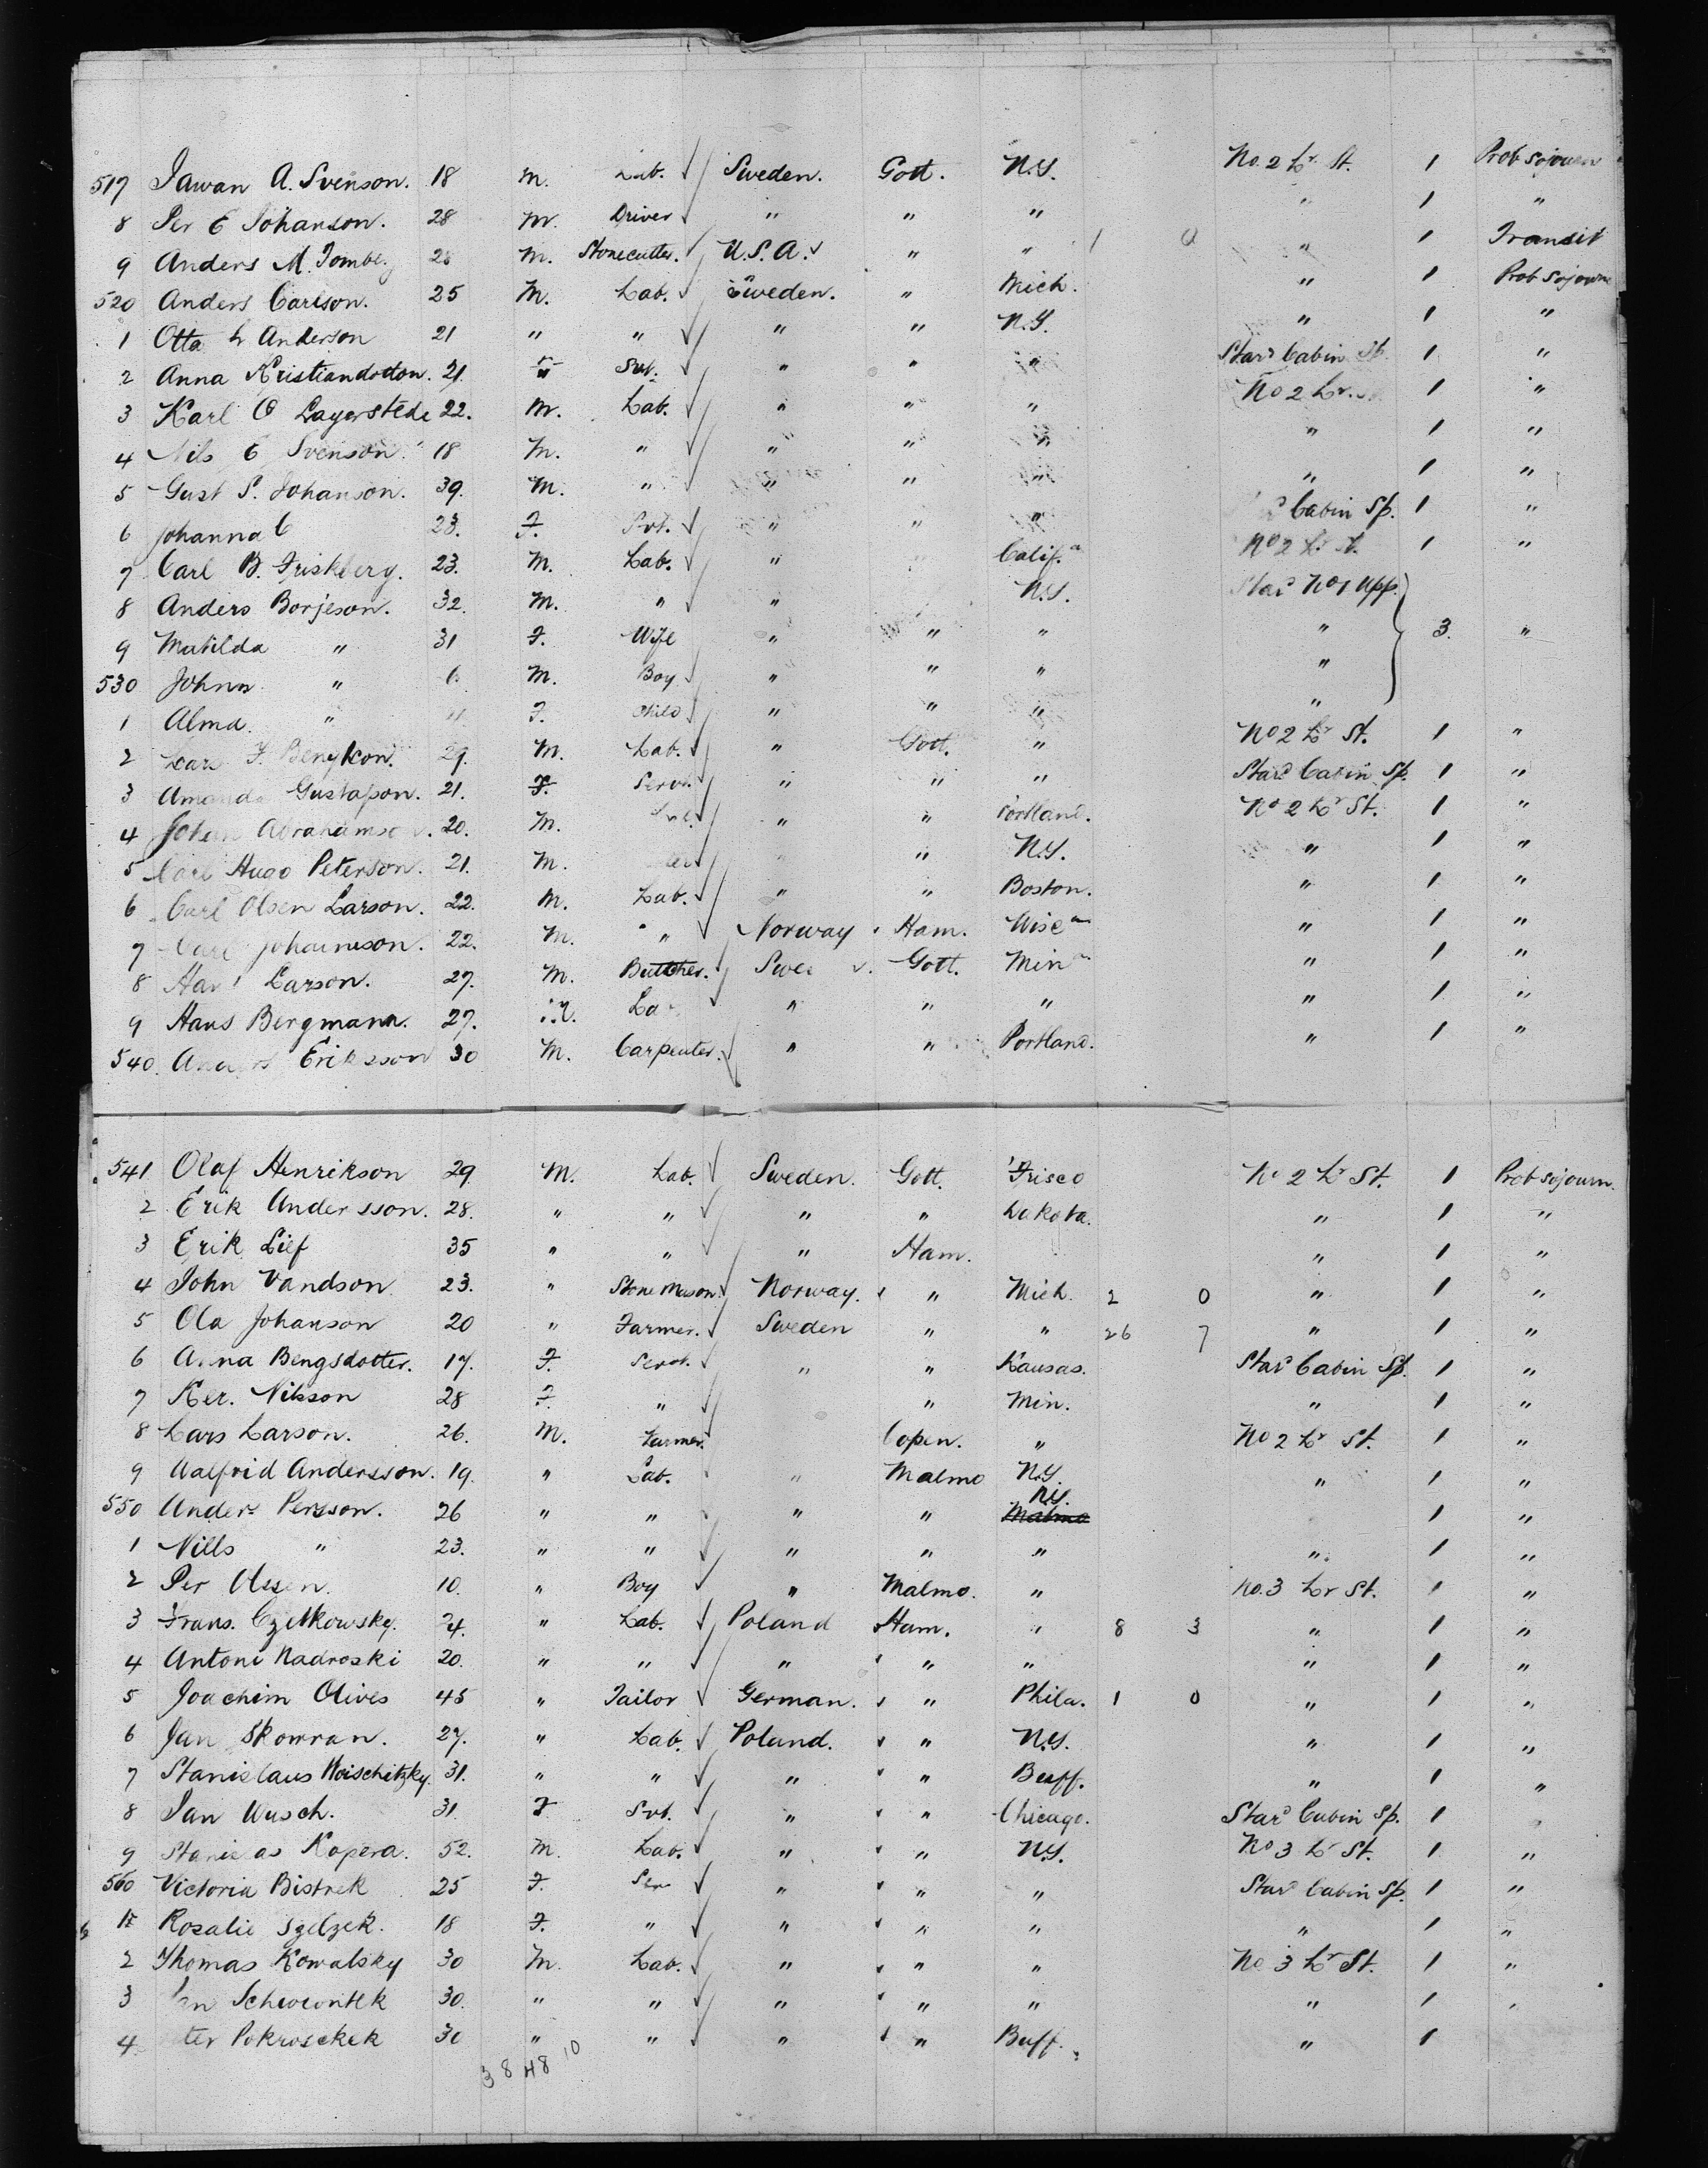 517 Jawan A. Svenson. 18 M. Lab. Sweden. Gott. N.Y. No. 2 Lr. St. 1 Prob sojourn
8 Per E Johanson. 28 M. Driver " " " " 1 "
9 Anders M. 28 M. Stonecutter. U.S.A. " " 1 0 " 1 Transit
520 Anders Carlson. 25 M. Lab. Sweden. " Mich. " 1 Prob sojourn
1 Otto Anderson 21 " " " " N.Y. " 1 "
2 Anna 21. " Svt. " " " Star'd Cabin Sp. 1 "
3 Karl O Lagerstede 22. M. Lab. " " " No 2 Lr. St. 1 "
4 Nils E Svenson 18 M. " " " " " 1 "
5 Gust S. Johanson. 39. M. " " " " " 1 "
6 Johanna C 23. F. Svt. " " " Cabin Sp. 1 "
7 Carl B. Friskberg. 23. M. Lab. " Calif.a No 2 Lr St. 1 "
8 Anders Borjeson. 32. M. " " N.Y. Star'd No 1 Upp.
9 Matilda " 31 F. Wife " " " " 3. "
530 Johan " 6. M. Boy " " " "
1 Alma. " F. Child " " " "
2 Lars F. 29. M. Lab. " Gott. " No 2 Lr St. 1 "
3 Amanda Gustafson. 21. F. Servt. " " " Star'd Cabin Sp. 1 "
4 Johan Abrahamson. 20. M. " " Portland. No 2 Lr St. 1 "
5 Carl Hugo Peterson. 21. M. " " N.Y. " 1 "
6 Carl Olsen Larson. 22. M. Lab. " " Boston. " 1 "
7 Carl Johanneson. 22. M. " Norway Ham. Wisc " 1 "
8 Larson. 27. M. Butcher. Swe Gott. Min " 1 "
9 Hans Bergmann. 27. M. La " " " " 1 "
540. Anders Eriksson 30 M. Carpenter. " " Portland. " 1 "
541 Olaf Henrikson 29 M. Lab. Sweden. Gott. 'Frisco No 2 Lr St. 1 Prob sojourn.
2 Erik Andersson. 28. " " " " Dakota. " 1 "
3 Erik Lief 35 " " " Ham. " 1 "
4 John Vandson 23. " Stone Mason. Norway. " Mich. 2 0 " 1 "
5 Ola Johanson 20 " Farmer. Sweden " " 26 7 " 1 "
6 Anna Bengsdotter. 17. F. Servt. " " Kansas. Star'd Cabin Sp. 1 "
7 Ker. Nilsson 28 F. " " Min. " 1 "
8 Lars Larson. 26. M. Farmer. Copen. " No 2 Lr St. 1 "
9 Walfrid Andersson. 19. " Lab. " Malmo N.Y. " 1 "
550 Anders Persson. 26 " " " " N.Y. Malmo 1 "
1 Nills " 23. " " " " " " 1 "
2 Per Olssen. 10. " Boy " Malmo. " No. 3 Lr St. 1 "
3 Frans. Czetkowsky. 24. " Lab. Poland Ham. " 8 3 " 1 "
4 Antoni Nadroski 20. " " " " " " 1 "
5 Joachim Olives 45 " Tailor German. " Phila. 1 0 " 1 "
6 Jan Skowran. 27. " Lab. Poland. " N.Y. " 1 "
7 Stanislaus Woischitzky. 31. " " " " Buff. " 1 "
8 Jan Wusch. 31. F Svt. " " Chicago. Star'd Cabin Sp. 1
9 Stanislas Kopera. 52. M. Lab. " " N.Y. No 3 Lr St. 1 "
560 Victoria Bistrek 25 F. Ser " " " Star'd Cabin Sp. 1 "
1 Rosalie Szelzek. 18 F. " " " " " 1 "
2 Thomas Kowalsky 30 M. Lab. " " " No 3 Lr St. 1 "
3 Jan 30. " " " " " " 1 "
4 Pokroschek 30 " " " " Buff. " 1
38 48 10